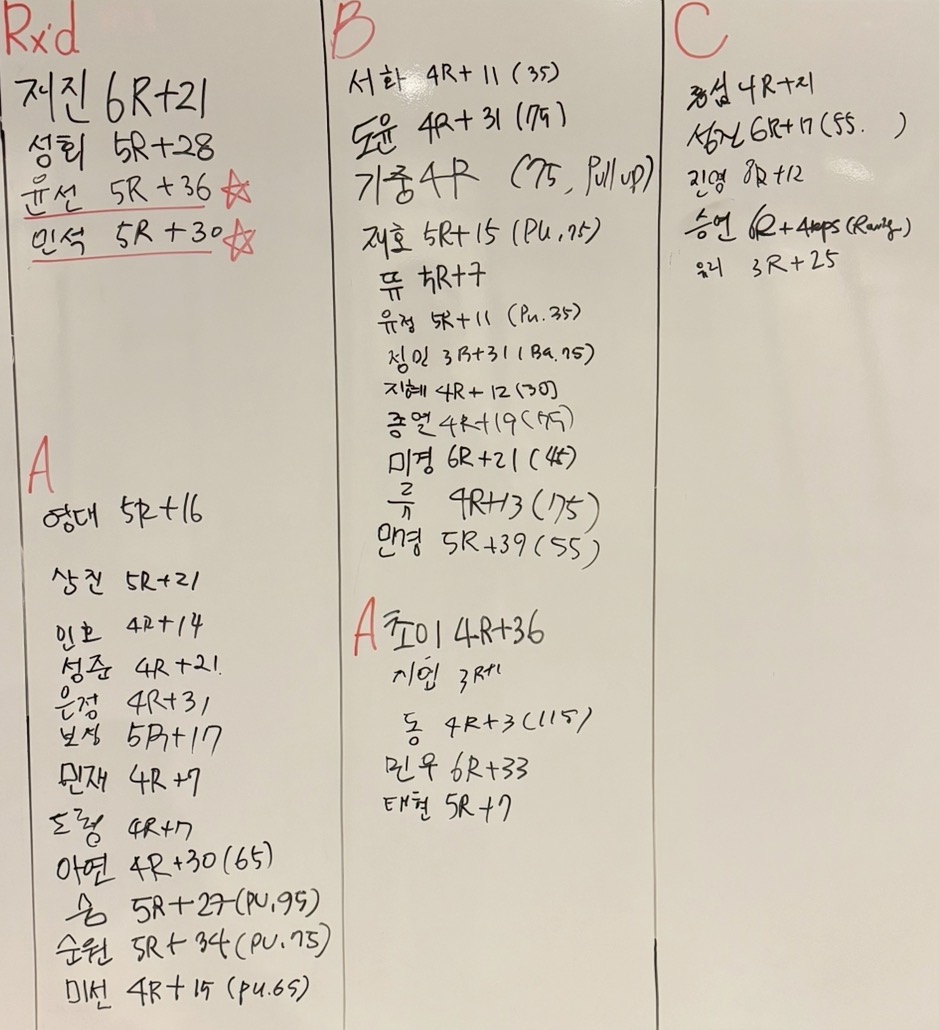 Rx'd
저진 6R+21
성희 5R+28
윤선 5R+36
민석 5R+30
A
영대 5R+16
상진 5R+21
인호 4R+14
성준 4R+21
은정 4R+31
보성 5R+17
민재 4R+7
도령 4R+7
아연 4R+30(65)
숭 5R+27(PU,95)
순원 5R+34(PU.75)
미선 4R+15(pu.65)
B
서화 4R+11(35)
도윤 4R+31(75)
기중 4R (75, Pull up)
재호 5R+15(PU,75)
뜌 5R+7
유정 5R+11 (Pu.35)
정인 3R+31(Ba.75)
지혜 4R+12(30)
종열 4R+19(75)
미경 6R+21(45)
류 4R+13(75)
민경 5R+39(55)
A
초이 4R+36
지연 3R+1
동 4R+3(115)
민우 6R+33
태현 5R+7
C
4R+21
6R+17(55. )
진영 8R+12
승연 6R+4reps
유리 3R+25